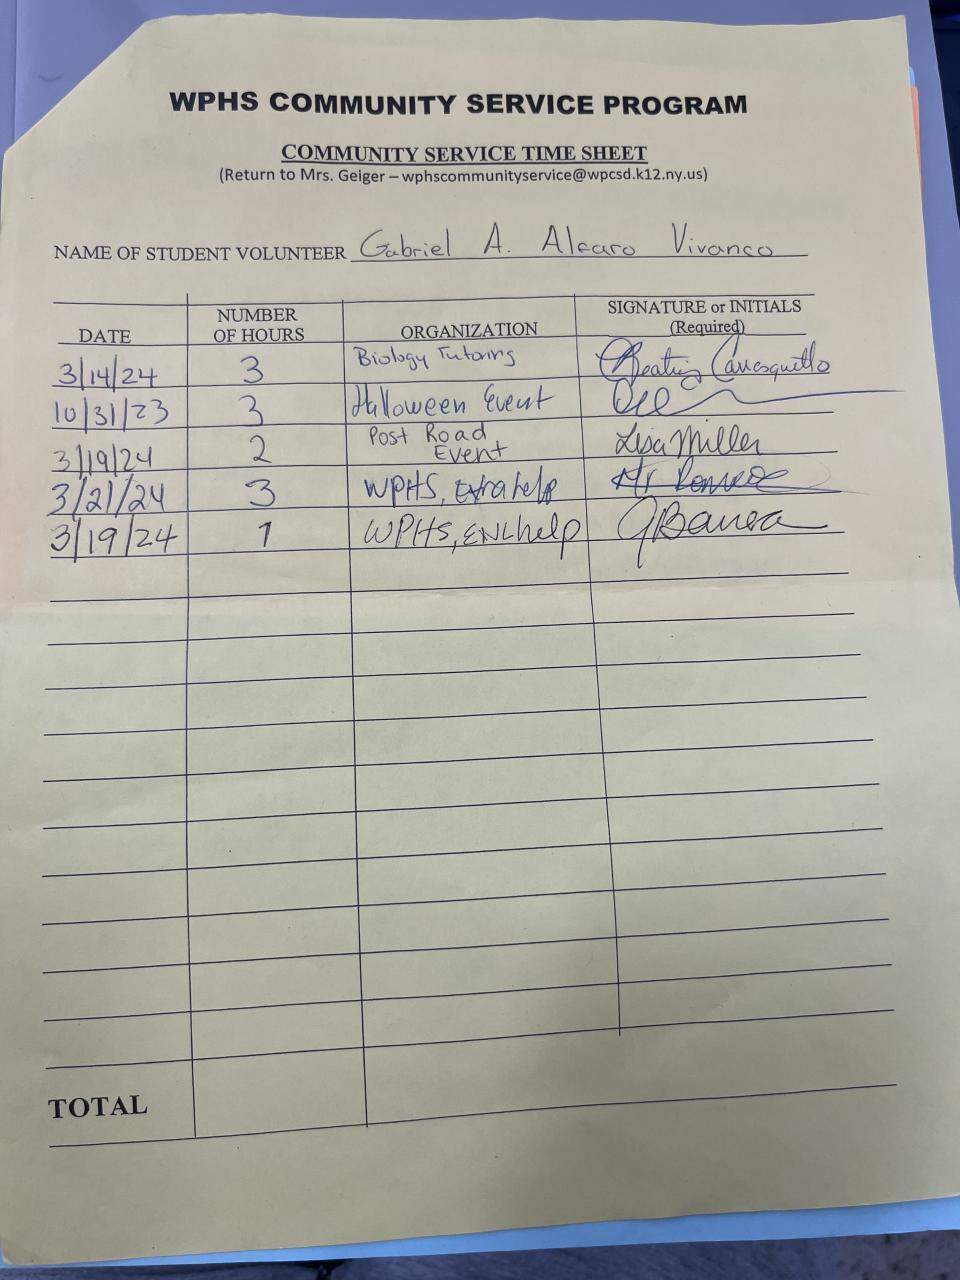 WPHS COMMUNITY SERVICE PROGRAM
COMMUNITY SERVICE TIME SHEET
(Return to Mrs. Geiger – wphscommunityservice@wpcsd.k12.ny.us)
NAME OF STUDENT VOLUNTEER Gabriel A. Alfaro Vivanco
DATE NUMBER OF HOURS ORGANIZATION SIGNATURE or INITIALS (Required)
3/14/24 3 Biology Tutoring
10/31/23 3 Halloween Event
3/19/24 2 Post Road Event Lisa Miller
3/21/24 3 WPHS, Extra help
3/19/24 1 WPHS, ENL help
TOTAL